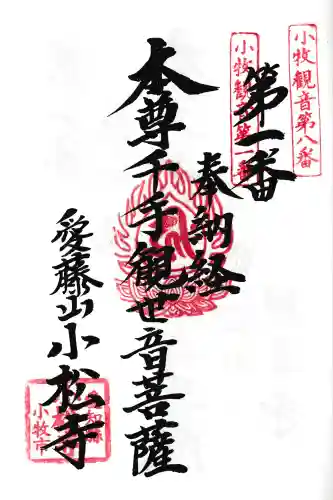 小牧観音第八番
小牧観音第一番
第一番
奉納経
本尊千手観世音菩薩
愛藤山小松寺
小牧市